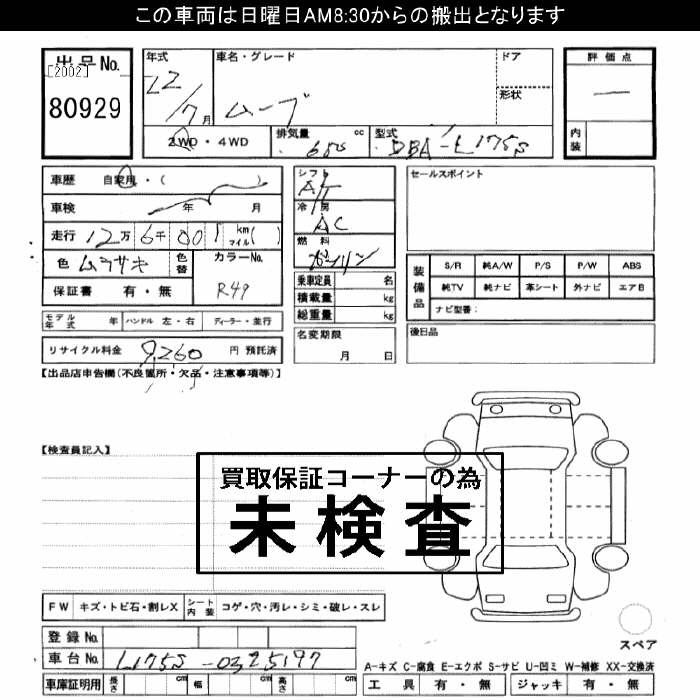 この車両は日曜日AM8:30からの搬出となります
出品No.
[2002]
80929
年式
22/7月
車名・グレード
ムーブ
ドア
形状
評価点
—
内装
2WD・4WD
排気量 cc
660
型式
DBA-L175S
車歴 自家用・( )
車検 年 月
走行 12万 6千 001 km マイル( )
色 ムラサキ
色替
カラーNo.
R49
保証書 有・無
シフト
AT
冷房
AC
燃料
ガソリン
乗車定員 名
積載量 kg
総重量 kg
セールスポイント
装備品
S/R 純A/W P/S P/W ABS
純TV 純ナビ 革シート 外ナビ エアB
ナビ型番:
モデル年式 年 ハンドル 左・右 ディーラー・並行
名変期限
月 日
後日品
リサイクル料金 9,260 円 預託済
【出品店申告欄(不良箇所・欠品・注意事項等)】
【検査員記入】
買取保証コーナーの為
未検査
FW キズ・トビ石・割レX
シート内装 コゲ・穴・汚レ・シミ・破レ・スレ
登録No.
車台No. L175S-0325197
スペア
A-キズ C-腐食 E-エクボ S-サビ U-凹ミ W-補修 XX-交換済
車庫証明用 長さ cm 幅 cm 高さ cm
工具 有・無 ジャッキ 有・無